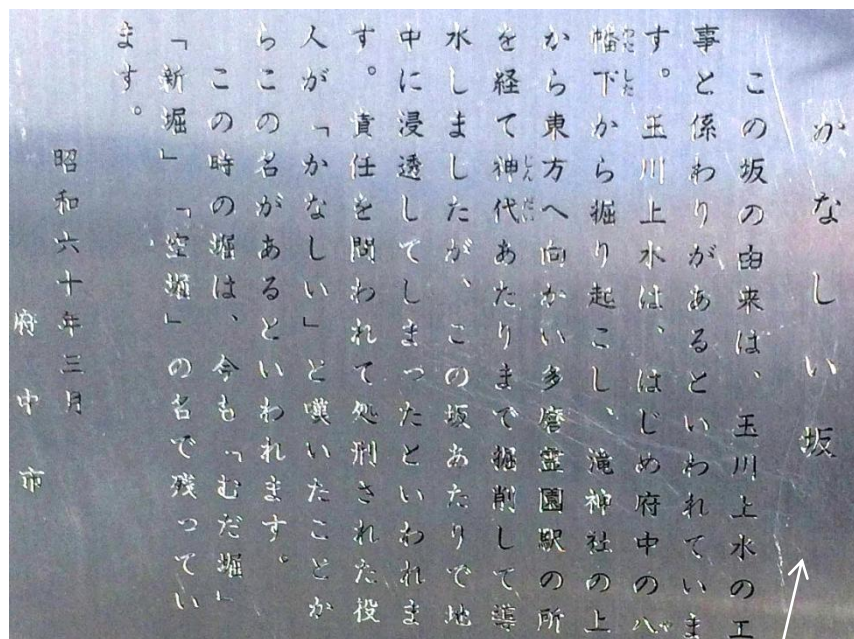 かなしい坂
この坂の由来は、玉川上水の工
事と係わりがあるといわれていま
す。玉川上水は、はじめ府中の八
幡下から掘り起こし、滝神社の上
から東方へ向かい多磨霊園駅の所
を経て神代あたりまで掘削して導
水しましたが、この坂あたりで地
中に浸透してしまったといわれま
す。責任を問われて処刑された役
人が「かなしい」と嘆いたことか
らこの名があるといわれます。
この時の堀は、今も「むだ堀」
「新堀」「空堀」の名で残ってい
ます。
昭和六十年三月
府中市